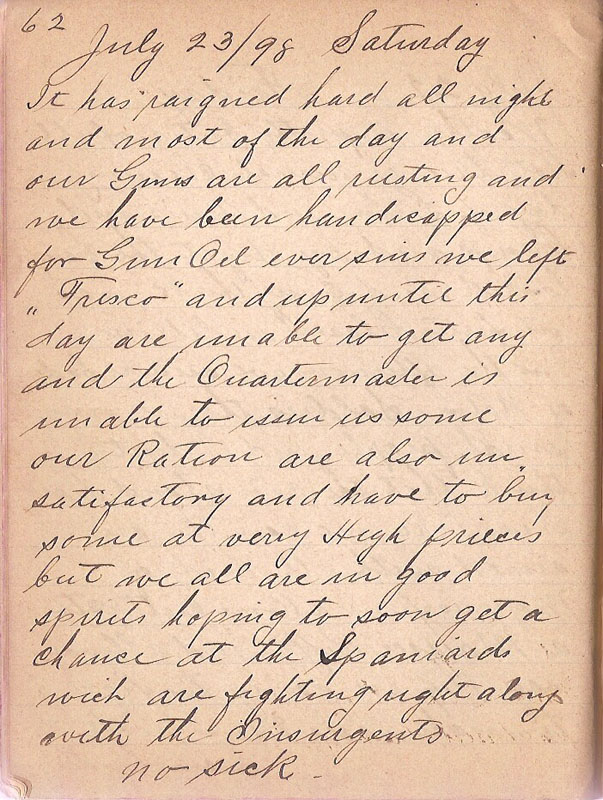 62
July 23/98 Saturday
It has raigned hard all night
and most of the day and
our Guns are all rusting and
we have been handicapped
for Gun Oil ever sins we left
"Frisco" and up until this
day are unable to get any
and the Quartermaster is
unable to issue us some
our Ration are also un
satifactory and have to buy
some at verry High prieces
but we all are in good
spirits hoping to soon get a
chance at the Spaniards
wich are fighting right along
with the Insurgents
no sick.